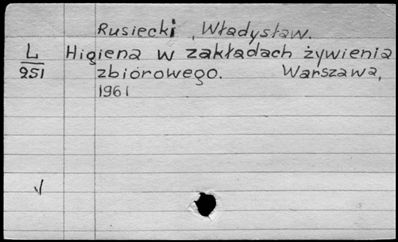 Rusiecki, Władysław.
L Higiena w zakładach żywienia
251 zbiorowego. Warszawa,
1961